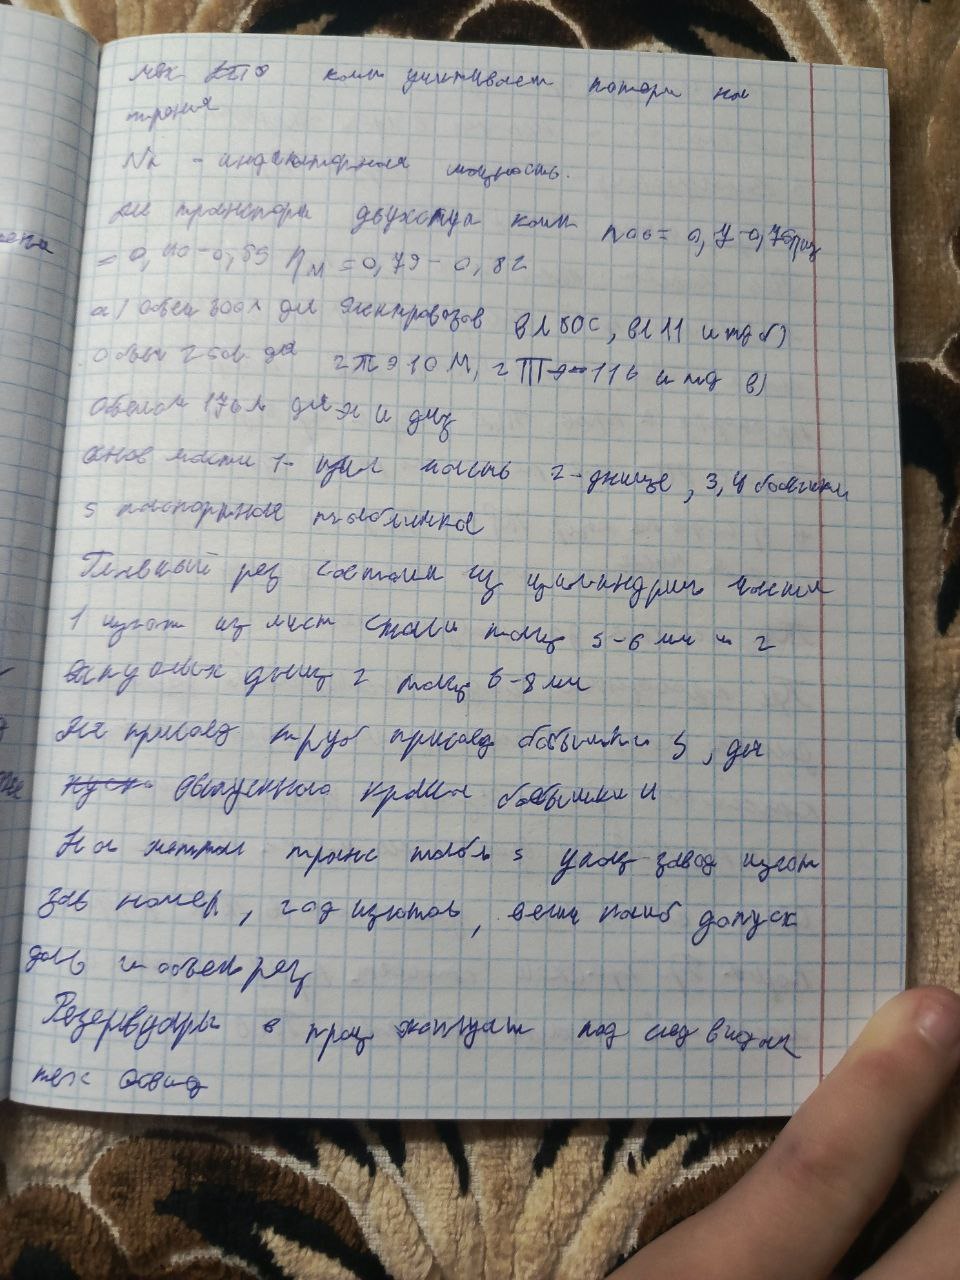 мех КПД комп учитывает потери на
трение
Nк - индикаторная мощность.
для транспорт двухступ комп ηоб = 0,7-0,76 ηиз
= 0,40-0,59 ηм = 0,79-0,82
а) объем 300л для электровозов ВЛ80С, ВЛ11 и тд б)
объем 250л для 2ТЭ10М, 2ТЭ-116 и тд в)
объемом 170л для эл и диз
основ части 1- цил часть 2-днище, 3,4 бобышки
5 паспортная табличка
Главный рез состоит из цилиндрич части
1 изгот из лист стали толщ 5-6 мм и 2
выпуклых днищ 2 толщ 6-8мм
Для присоед труб присоед бобышки 3, для
выпускного крана бобышки 4
На метал транс табл 5 указ завод изгот
зав номер, год изготов, велич наиб допуск
дав и объем рез
Резервуары в проц эксплуат под след видам
тех освид